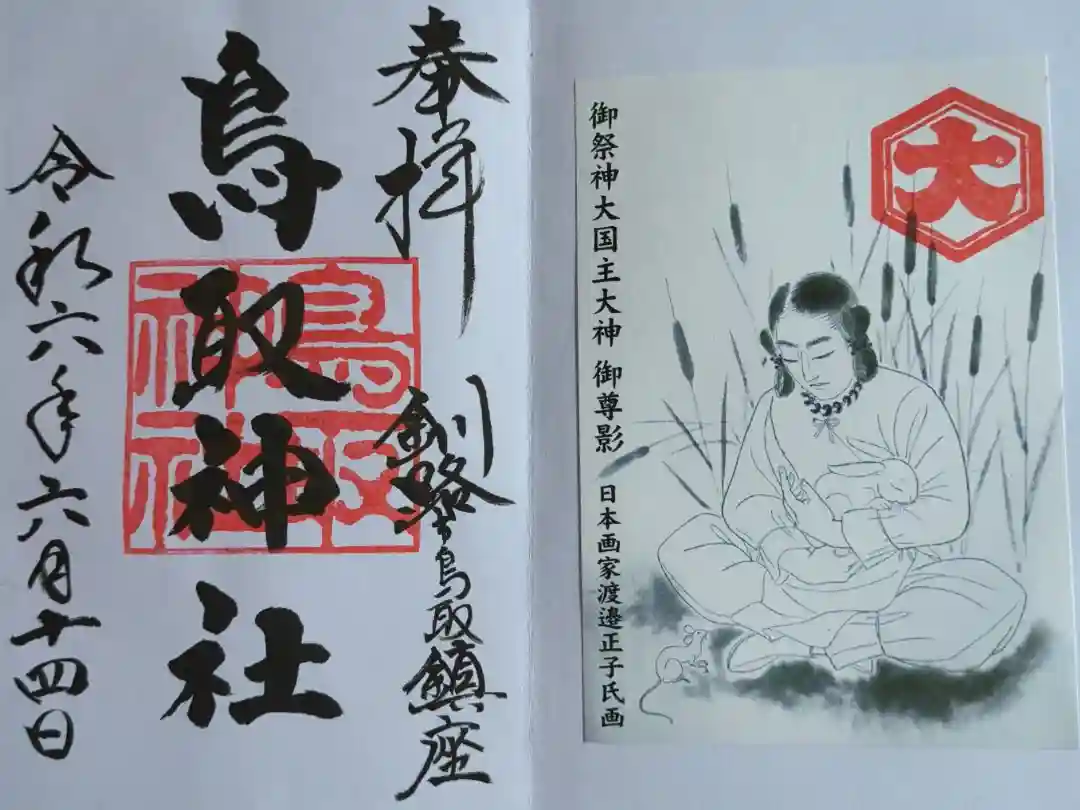 奉拝
釧路市鳥取鎮座
鳥取神社
鳥取神社
令和六年六月十四日
大
御祭神大国主大神 御尊影
日本画家渡邉正子氏画